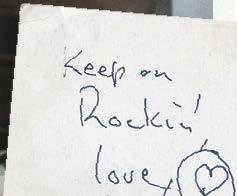 Keep on
Rockin'
love,